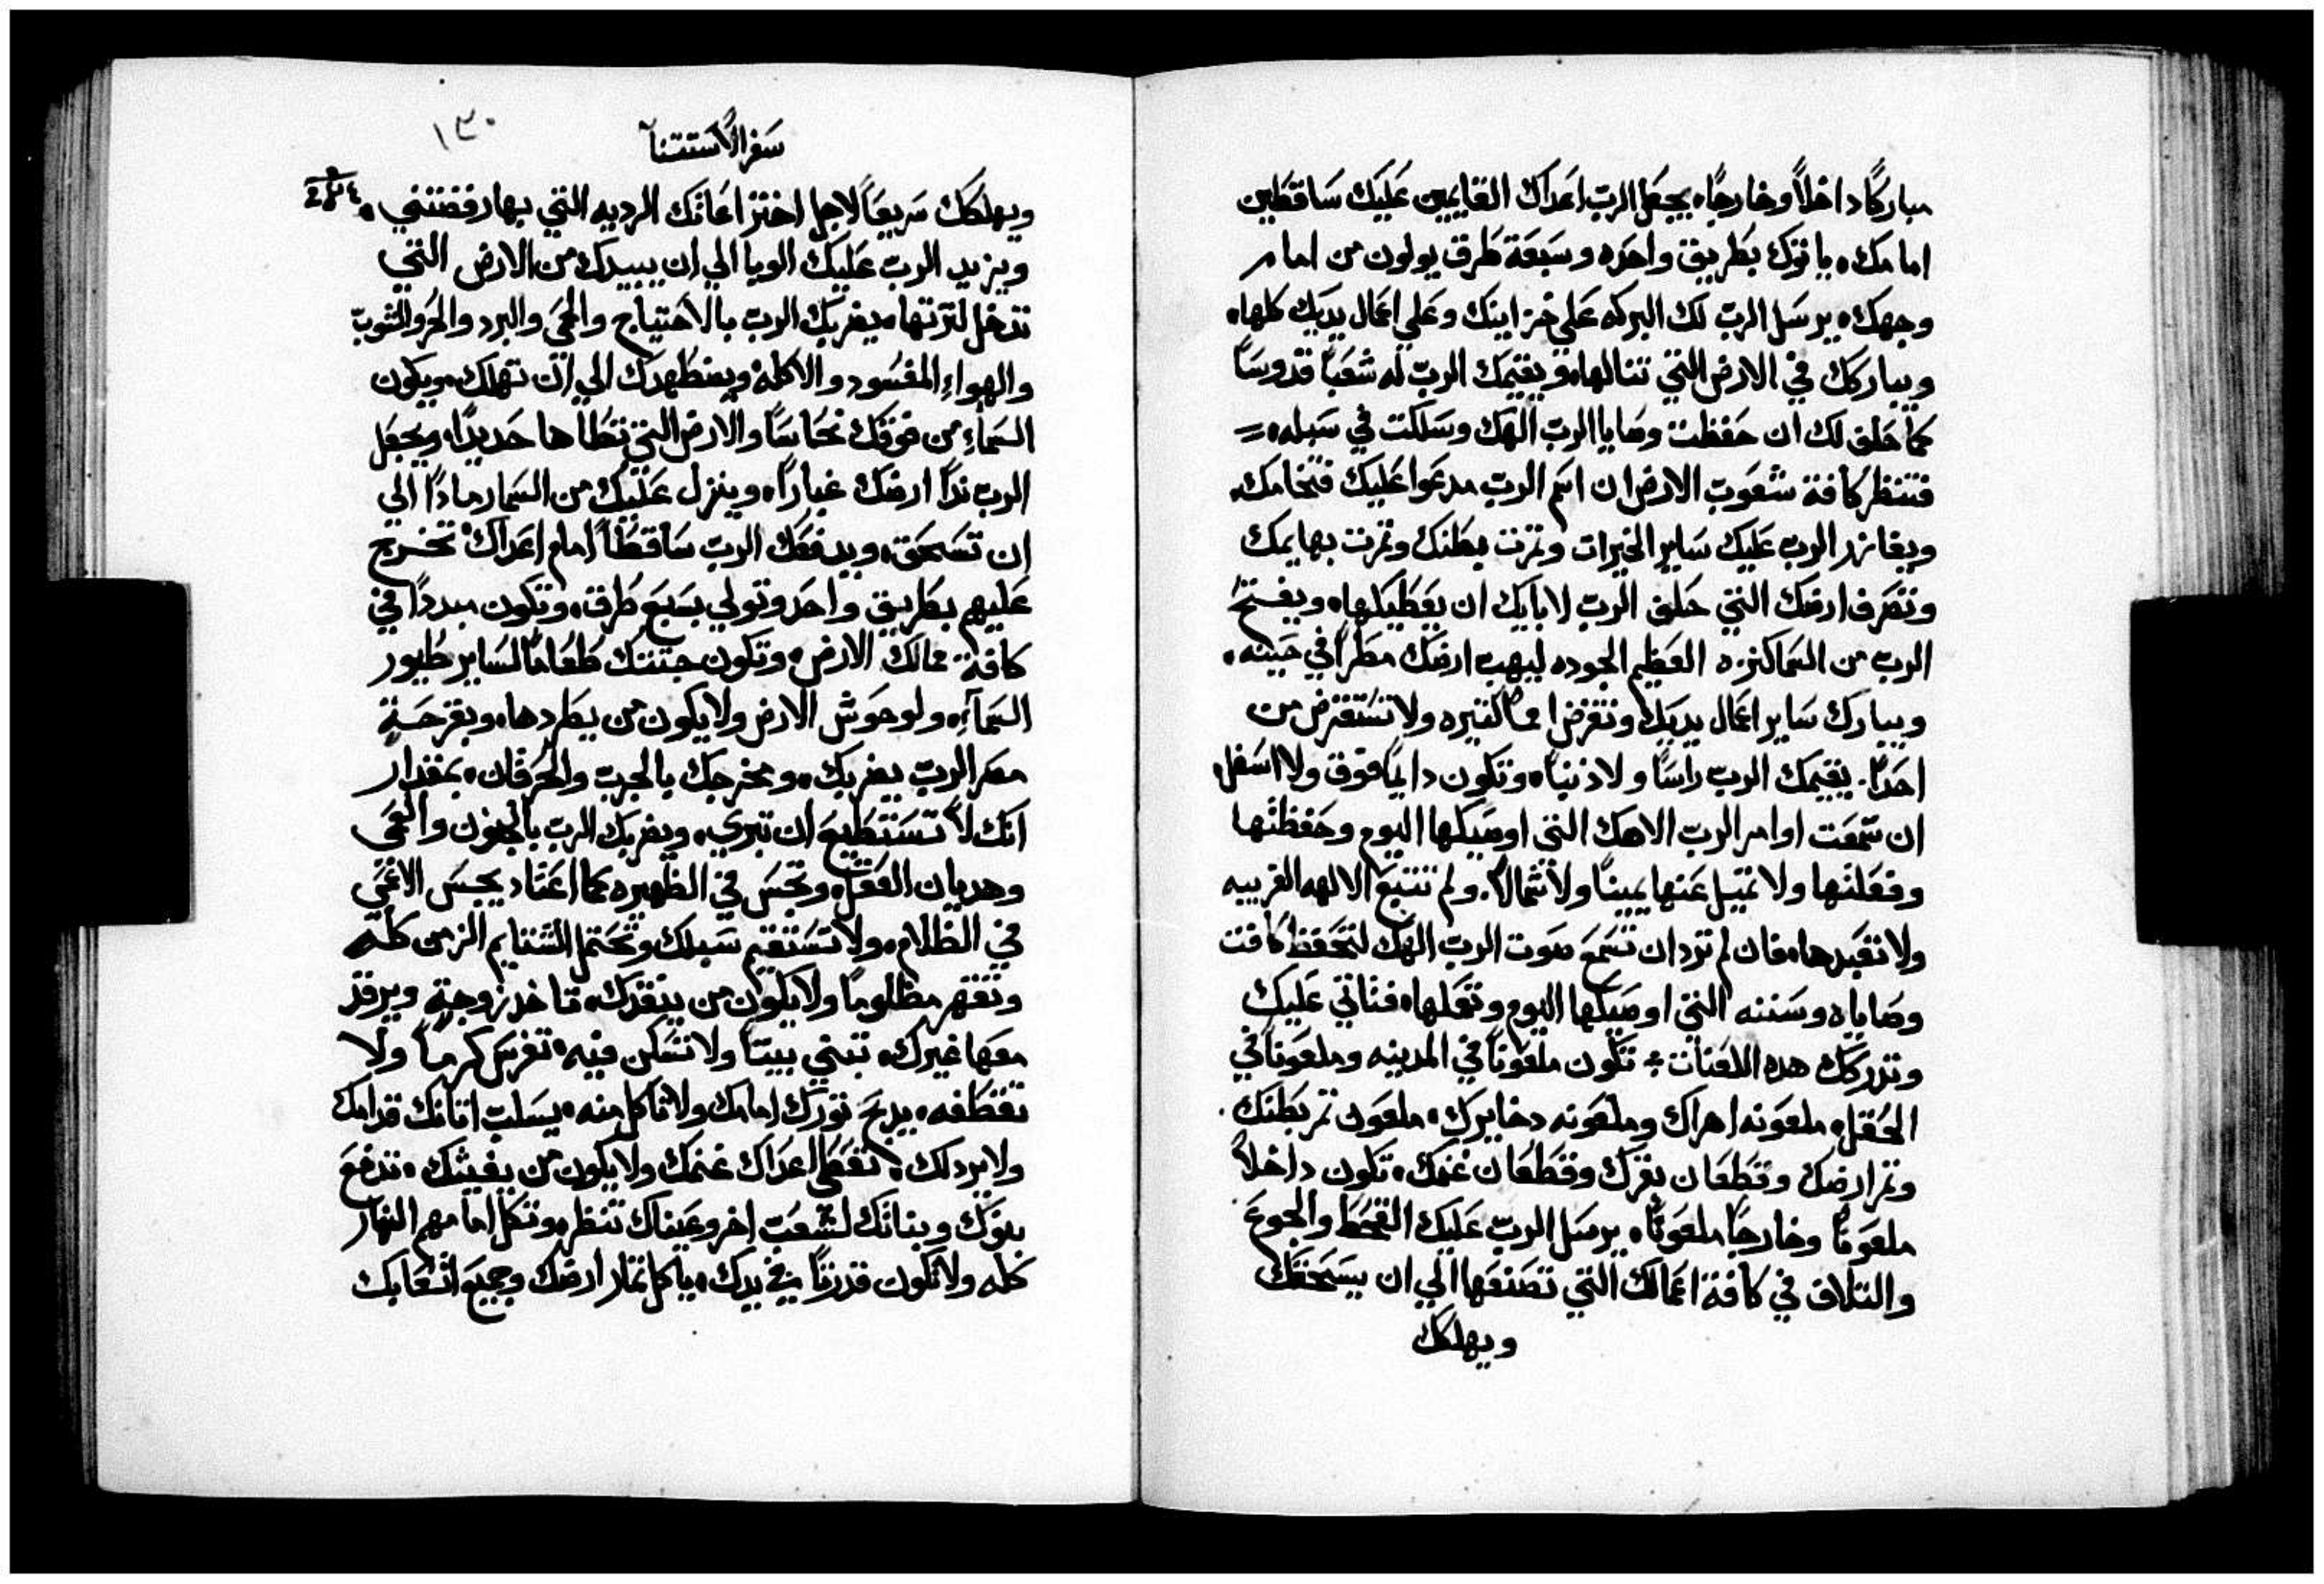 مباركًا داخلاً وخارجًا. يجعل الرب اعداك القايمين عليك ساقطين
امامك. ياتوك بطريق واحده وسبعة طرق يولون من امام
وجهك. يرسل الرب لك البركه علي خزاينك وعلي اعمال يديك كلها.
ويباركك في الارض التي تنالها. ويقيمك الرب له شعبًا قدوسًا
كما حلف لك ان حفظت وصايا الرب الهك وسلكت في سبله. =
فتنظر كافة شعوب الارض ان اسم الرب مدعوا عليك فتخامك.
ويغازر الرب عليك ساير الخيرات وثمرت بطنك وثمرت بهايمك
وثمرت ارضك التي حلف الرب لابايك ان يعطيكها. ويفتح
الرب من السما كنزه العظيم الجوده ليهب ارضك مطرًا في حينه.
ويبارك ساير اعمال يديك وتقرض امما كثيره ولا تستقرض من
احدًا. يقيمك الرب راسًا ولا ذنبًا. وتكون دايمًا فوق ولا اسفل
ان سمعت اوامر الرب الاهك التي اوصيكها اليوم وحفظتها
وفعلتها ولا تميل عنها يمينًا ولا شمالاً. ولم تتبع الالهه الغريبه
ولا تعبدها. فان لم ترد ان تسمع صوت الرب الهك لتحفظ كافت
وصاياه وسننه التي اوصيكها اليوم وتعملها. فتاتي عليك
وتدركك هده اللعنات ÷ تكون ملعونًا في المدينه وملعونًا في
الحقل. ملعونه اهراك وملعونه دخايرك. ملعون ثمر بطنك.
وثمر ارضك وقطعان بقرك وقطعان غنمك. تكون داخلاً
ملعونًا وخارجًا ملعونًا. يرسل الرب عليك القحط والجوع
والتلاف في كافة اعمالك التي تصنعها الي ان يسحقك
ويهلكك
سفر الاستتنا
١٣٠
ويهلكك سريعًا لاجل اختراعاتك الرديه التي بها رفضتني.
ويزيد الرب عليك الوبا الي ان يبيدك من الارض التي
تدخل لترتها. يضربك الرب بالاحتياج والحمى والبرد والحر والشوب
والهواء المفسود والاكله ويضطهدك الي ان تهلك. ويكون
السماء من فوقك نحاسًا والارض التي تطاها حديدًا. ويجعل
الرب ندا ارضك غبارًا. وينزل عليك من السما رمادًا الي
ان تسحق. ويدفعك الرب ساقطًا امام اعداك تخرج
عليهم بطريق واحد وتولي بسبع طرق. وتكون مبددًا في
كافة ممالك الارض. وتكون جتتك طعامًا لساير طيور
السماء. ولوحوش الارض ولا يكون من يطردها. وبقرحة
مصر الرب يضربك. ومخرجك بالجرب والحرقان. بمقدار
انك لا تستطيع ان تبري. ويضربك الرب بالجنون والعمى
وهديان العقل. وتجس في الظهيره كما اعتاد يجس الاعمى
في الظلام. ولا تستقيم سبلك وتحتمل الشتايم الزمن كله
وتقهر مظلومًا ولا يكون من ينقدك. تاخد زوجة ويرقد
معها غيرك. تبني بيتًا ولا تسكن فيه. تغرس كرمًا ولا
تقطفه. يدبح تورك امامك ولا تاكل منه. يسلب اتانك قدامك
ولا يرد لك. تعطى اعداك غنمك ولا يكون من يغيتك. تدفع
بنوك وبناتك لشعب اخر وعيناك تنظر. وتكل امامهم النهار
كله ولا تكون قدرتًا في يدك. ياكل تمار ارضك وجميع اتعابك